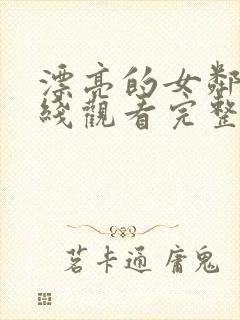 漂亮的女鄰
綫觀看完整
茗卡通 庸鬼